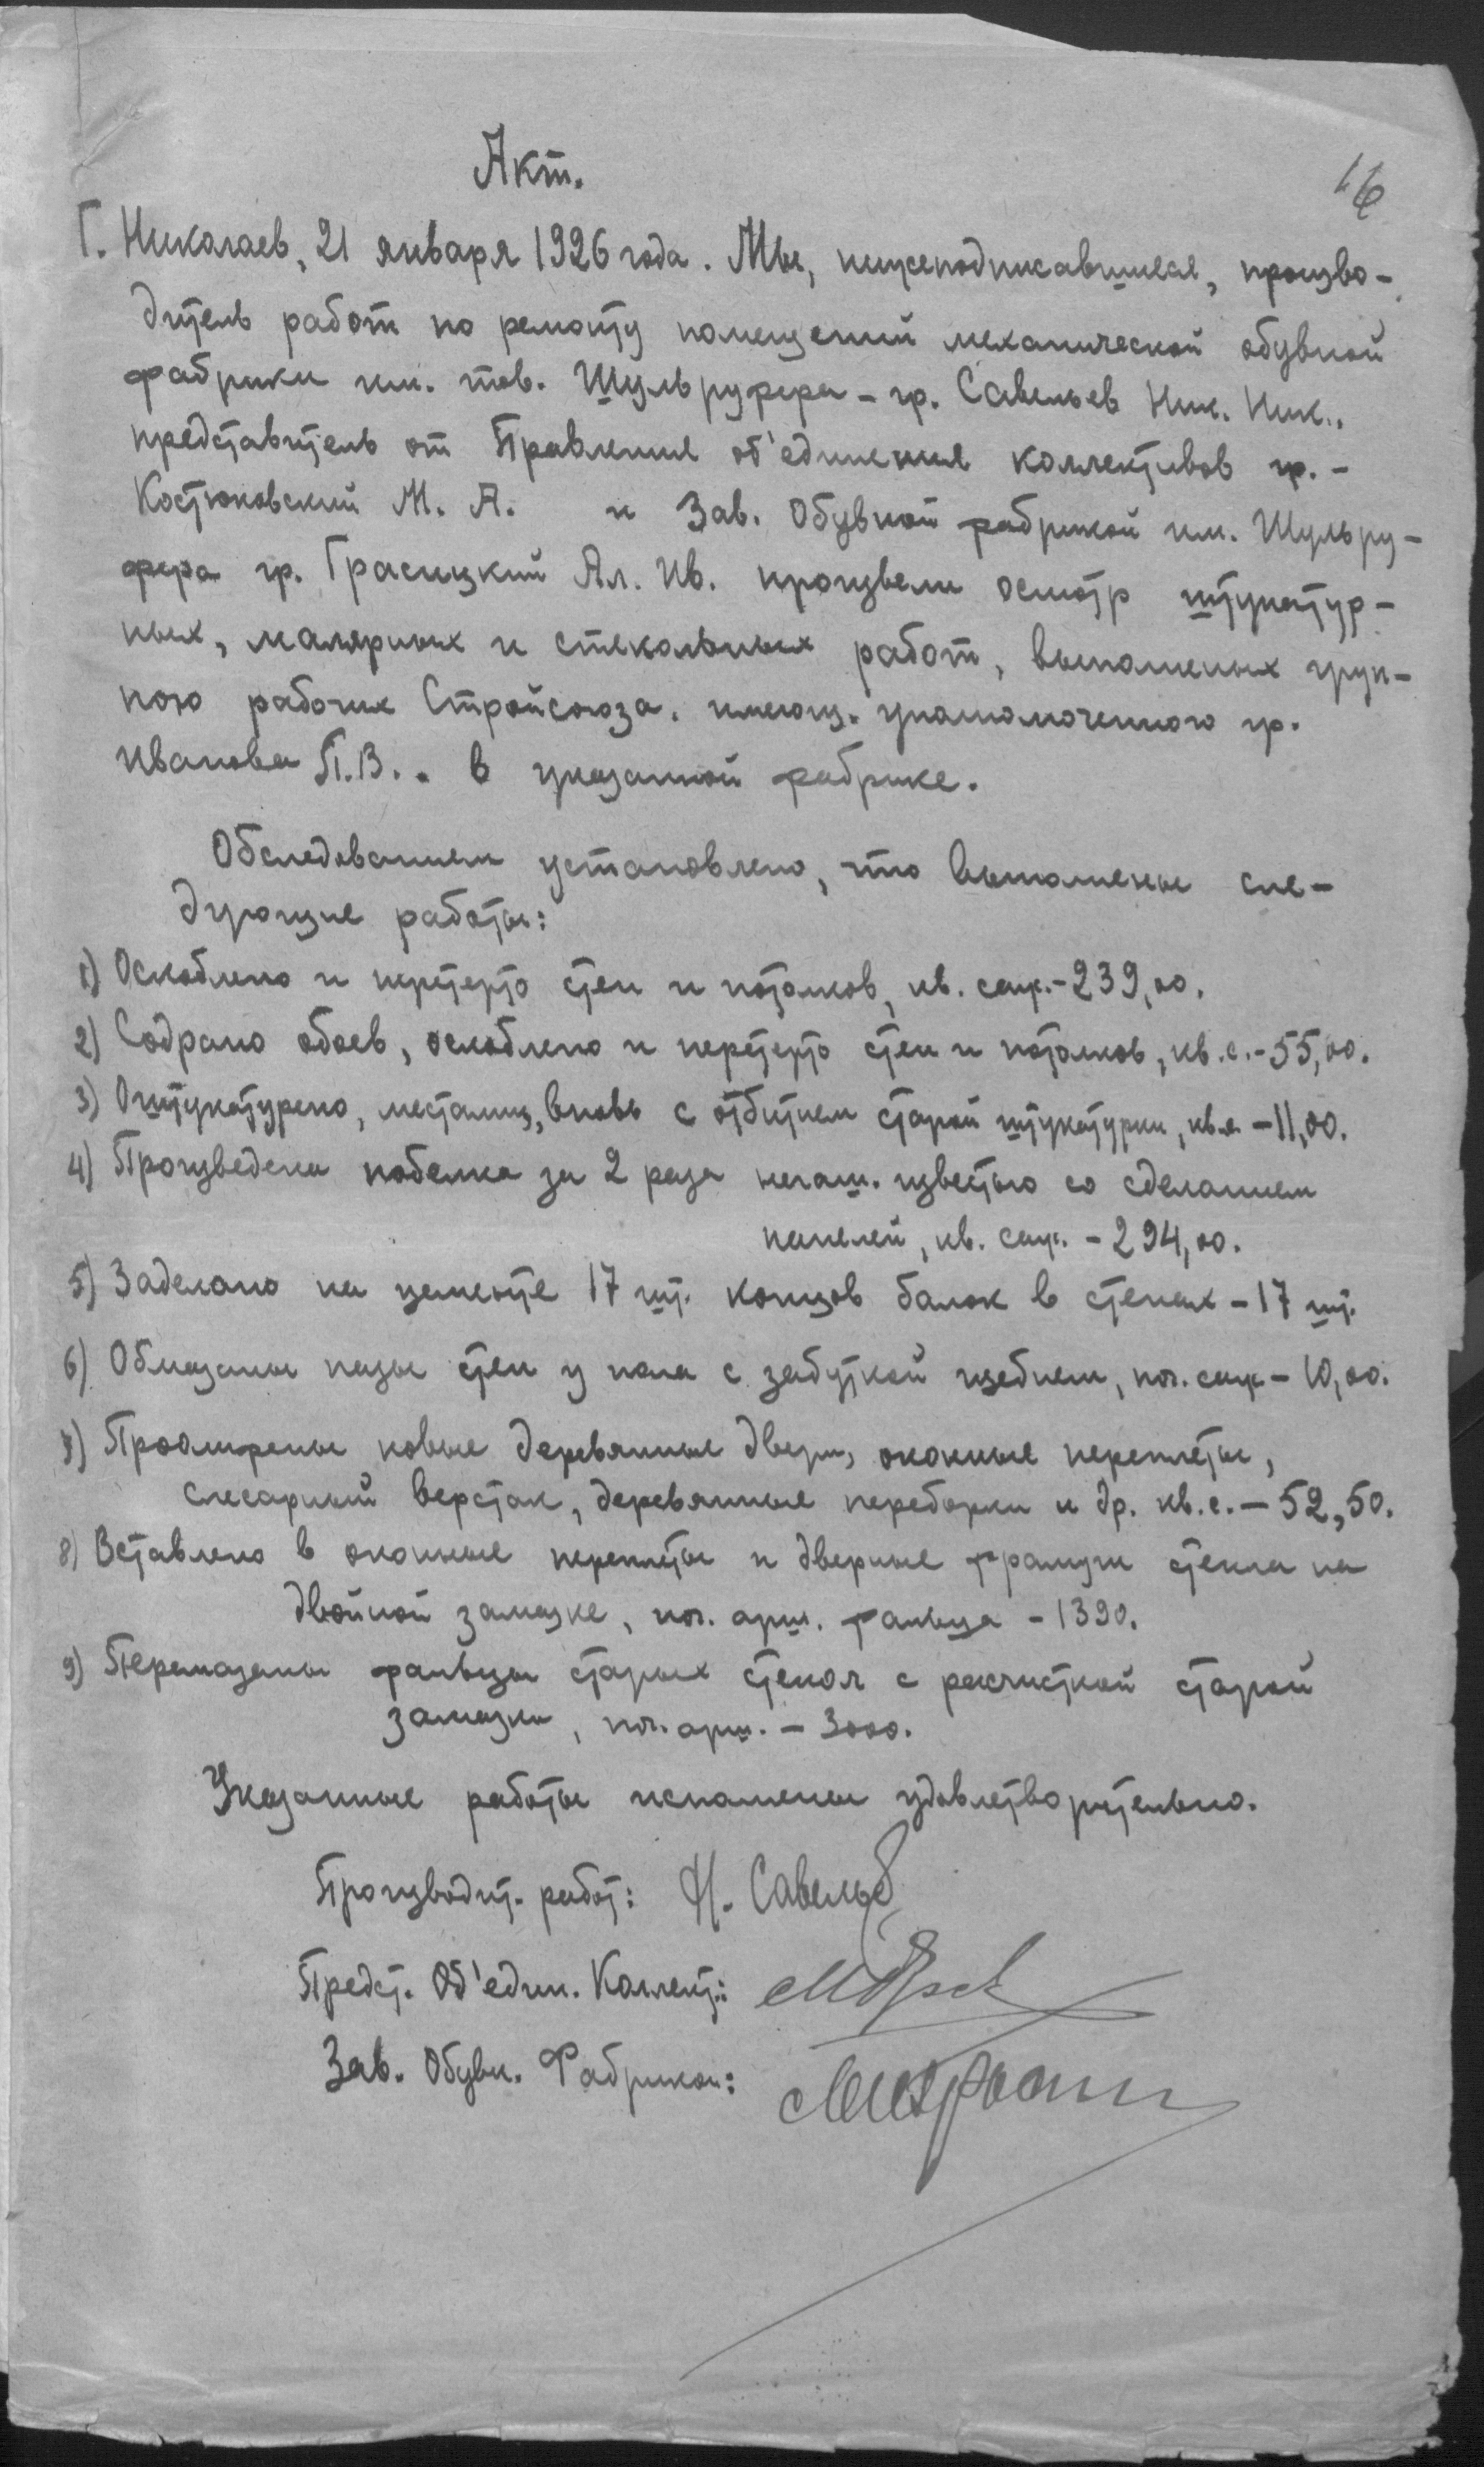 16
Акт.
Г. Николаев, 21 января 1926 года. Мы, нижеподписавшиеся, произво-
дитель работ по ремонту помещений механической обувной
фабрики им. тов. Шульруфера - гр. Савельев Ник. Ник.,
представитель от Правления об'единения коллективов гр. -
Костюковский М. А. и Зав. Обувной фабрикой им. Шульру-
фера гр. Грасицкий Ал. Ив. произвели осмотр штукатур-
ных, малярных и стекольных работ, выполненых груп-
пою рабочих Стройсоюза, имеющ. уполномоченного гр.
Иванова П.В.. в указанной фабрике.
Обследованием установлено, что выполнены сле-
дующие работы:
1) Оскоблено и перетерто стен и потолков, кв. саж. - 239,00.
2) Содрано обоев, оскоблено и перетерто стен и потолков, кв. с. - 55,00.
3) Оштукатурено, местами, вновь с отбитием старой штукатурки, кв. с. - 11,00.
4) Произведена побелка за 2 раза негаш. известью со сделанием
панелей, кв. саж. - 294,00.
5) Заделано на цементе 17 шт. концов балок в стенах - 17 шт.
6) Обмазаны пазы стен у пола с забуткой щебнем, пог. саж - 10,00.
7) Проолифены новые деревянные двери, оконные переплеты,
слесарный верстак, деревянные переборки и др. кв. с. - 52,50.
8) Вставлено в оконные переплеты и дверные фрамуги стекла на
двойной замазке, пог. арш. фальца - 1390.
9) Перемазаны фальцы старых стекол с расчисткой старой
замазки, пог. арш. - 3000.
Указанные работы исполнены удовлетворительно.
Производит. работ: Н. Савельев
Предст. Об'един. Коллект.:
Зав. Обувн. Фабрикой: